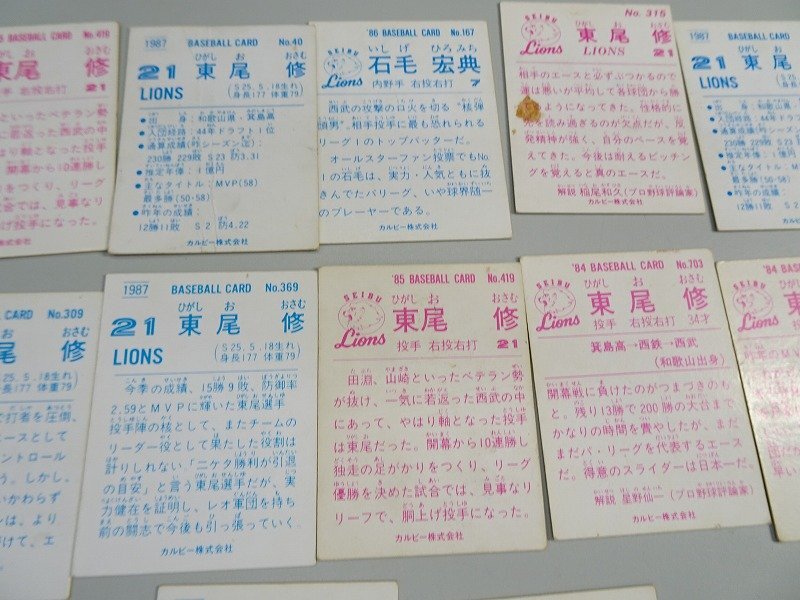 BASEBALL CARD No.419
東尾 修
投手 右投右打
21
といったベテラン勢
若返った西武の中
はり軸となった投手
開幕から10連勝し
をつくり、リーグ
試合では、見事なリ
投手になった。
株式会社
1987 BASEBALL CARD No.40
ひがし お おさむ
21 東尾 修
LIONS
S25.5.18生れ
身長177 体重79
●出身:和歌山県・箕島高
●入団経路:44年ドラフト1位
●通算成績(昨シーズン迄):
230勝 229敗 23S 防3.31
●推定年俸:1億円
●主なタイトル:MVP(58)
最多勝(50・58)
●昨年の成績:
12勝11敗 S2 防4.22
カルビー株式会社
'86 BASEBALL CARD No.167
SEIBU
Lions
いしげ ひろみち
石毛 宏典
内野手 右投右打 7
西武の攻撃の口火を切る“核弾
頭男”。相手投手に最も恐れられる
リーグ1のトップバッターだ。
オールスターファン投票でもNo.
1の石毛は、実力・人気ともに抜
きんでたパリーグ、いや球界随一
のプレーヤーである。
カルビー株式会社
No.315
SEIBU
Lions
ひがし お おさむ
東尾 修
LIONS 21
相手のエースと必ずぶつかるので
運は悪いが平均して各球団から勝
るようになってきた。性格的に
先を読み過ぎるのが欠点だが、反
発精神が強く、自分のペースを覚
えてきた。今後は耐えるピッチン
グを覚えると真のエースだ。
解説 稲尾和久(プロ野球評論家)
カルビー株式会社
1987
21 東
LIONS
●出身
●入団経路
●通算成績
230勝
●推定年俸
●主なタイト
最多勝(50
●昨年の成
12勝11敗
No.309
おさむ
尾 修
S25.5.18生れ
身長177 体重79
で打者を圧倒、
エースとして
コントロール
う。しかし、
いかわらず
ンは、より
がけて、エ
1987 BASEBALL CARD No.369
ひがし お おさむ
21 東尾 修
LIONS
S25.5.18生れ
身長177 体重79
今季の成績、15勝9敗、防御率
2.59とMVPに輝いた東尾選手
投手陣の核として、またチームの
リーダー役として果たした役割は
計りしれない「二ケタ勝利が引退
の目安」と言う東尾選手だが、実
力健在を証明し、レオ軍団を持ち
前の闘志で今後も引っ張っていく。
カルビー株式会社
'85 BASEBALL CARD No.419
SEIBU
Lions
ひがし お おさむ
東尾 修
投手 右投右打 21
田淵、山崎といったベテラン勢
が抜け、一気に若返った西武の中
にあって、やはり軸となった投手
は東尾だった。開幕から10連勝し
独走の足がかりをつくり、リーグ
優勝を決めた試合では、見事なリ
リーフで、胴上げ投手になった。
カルビー株式会社
'84 BASEBALL CARD No.703
SEIBU
Lions
ひがし お おさむ
東尾 修
投手 右投右打 34才
箕島高→西鉄→西武
(和歌山出身)
開幕戦に負けたのがつまづきのも
と、残り13勝で200勝の大台まで
かなりの時間を費やしたが、まだ
まだパ・リーグを代表するエース
だ。得意のスライダーは日本一だ。
解説 星野仙一(プロ野球評論家)
カルビー株式会社
'84 BASEBALL
Lions